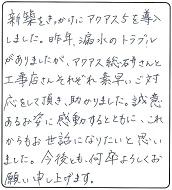 新築をきっかけにアクアス5を導入
しました。昨年、漏水のトラブル
がありましたが、アクアス総研さんと
工事店さんそれぞれ素早いご対
応をして頂き、助かりました。誠意
あるお姿に感動するとともに、これ
からもお世話になりたいと思い
ました。今後とも、何卒よろしくお
願い申し上げます。